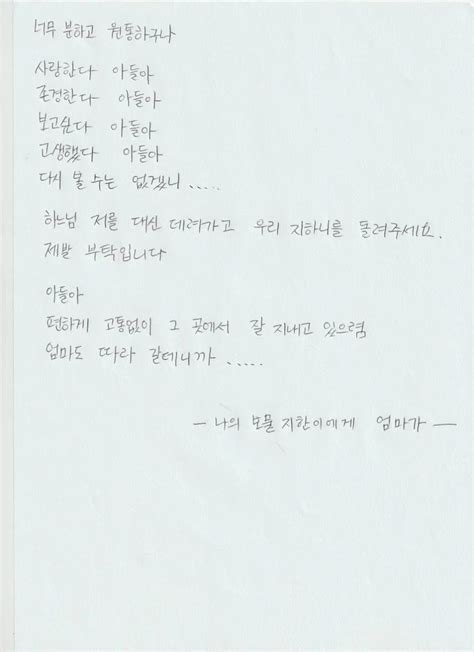 너무 분하고 원통하구나
사랑한다 아들아
존경한다 아들아
보고싶다 아들아
고생했다 아들아
다시 볼 수는 없겠니.....
하느님 저를 대신 데려가고 우리 지하니를 돌려주세요.
제발 부탁입니다
아들아
편하게 고통없이 그 곳에서 잘 지내고 있으렴
엄마도 따라 갈테니까.....
- 나의 보물 지한이에게 엄마가 -